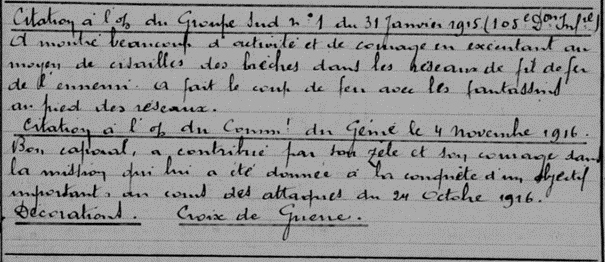 Citation à l'of du Groupe Sud n°1 du 31 Janvier 1915 (105e Don Infie)
A montré beaucoup d'activité et de courage en exécutant au
moyen de cisailles des brèches dans les réseaux de fil de fer
de l'ennemi. A fait le coup de feu avec les fantassins
au pied des réseaux.
Citation à l'of du Commt du Génie le 4 Novembre 1916.
Bon caporal, a contribué par son zèle et son courage dans
la mission qui lui a été donnée à la conquête d'un objectif
important, au cours des attaques du 24 Octobre 1916.
Décorations. Croix de Guerre.